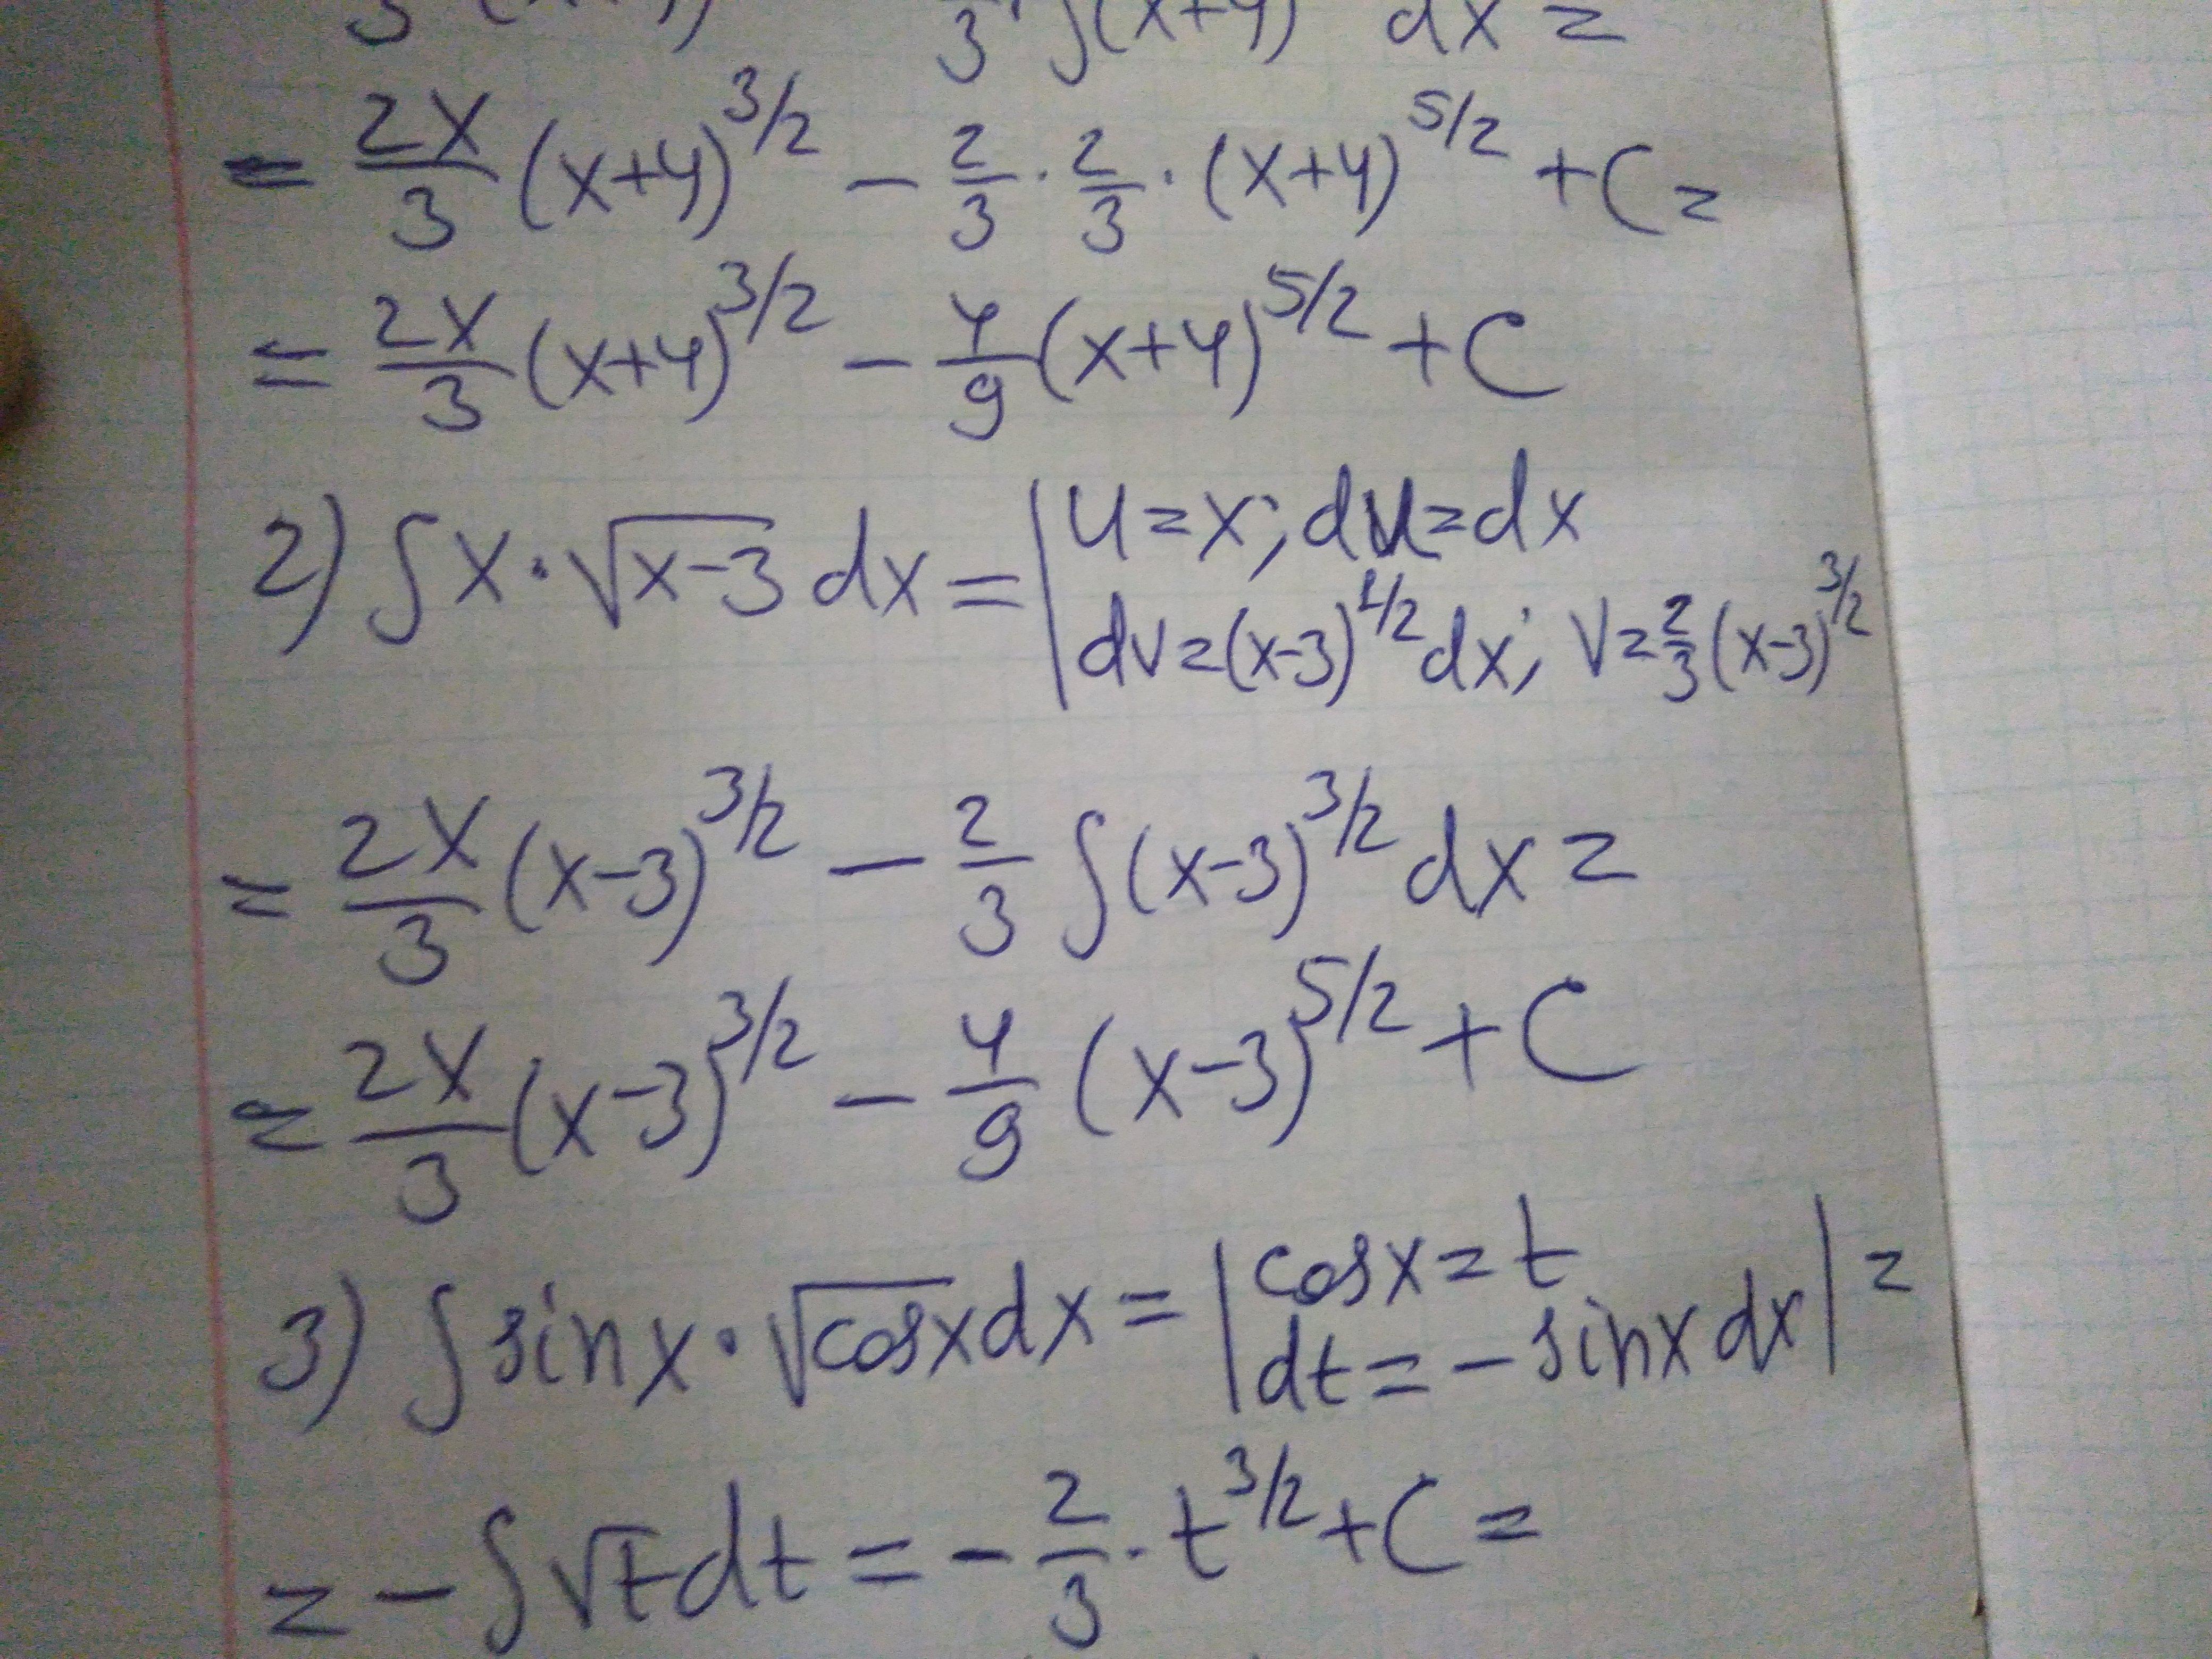 ∫(x+4) dx =
= 2x/3 (x+4)^3/2 - 2/3 · 2/3 · (x+4)^5/2 + C =
= 2x/3 (x+4)^3/2 - 4/9 (x+4)^5/2 + C
2) ∫ x · √(x-3) dx = | u = x; du = dx
dv = (x-3)^1/2 dx; v = 2/3 (x-3)^3/2
= 2x/3 (x-3)^3/2 - 2/3 ∫ (x-3)^3/2 dx =
= 2x/3 (x-3)^3/2 - 4/9 (x-3)^5/2 + C
3) ∫ sinx · √cosx dx = | cosx = t
dt = - sinx dx | =
= - ∫ √t dt = - 2/3 · t^3/2 + C =